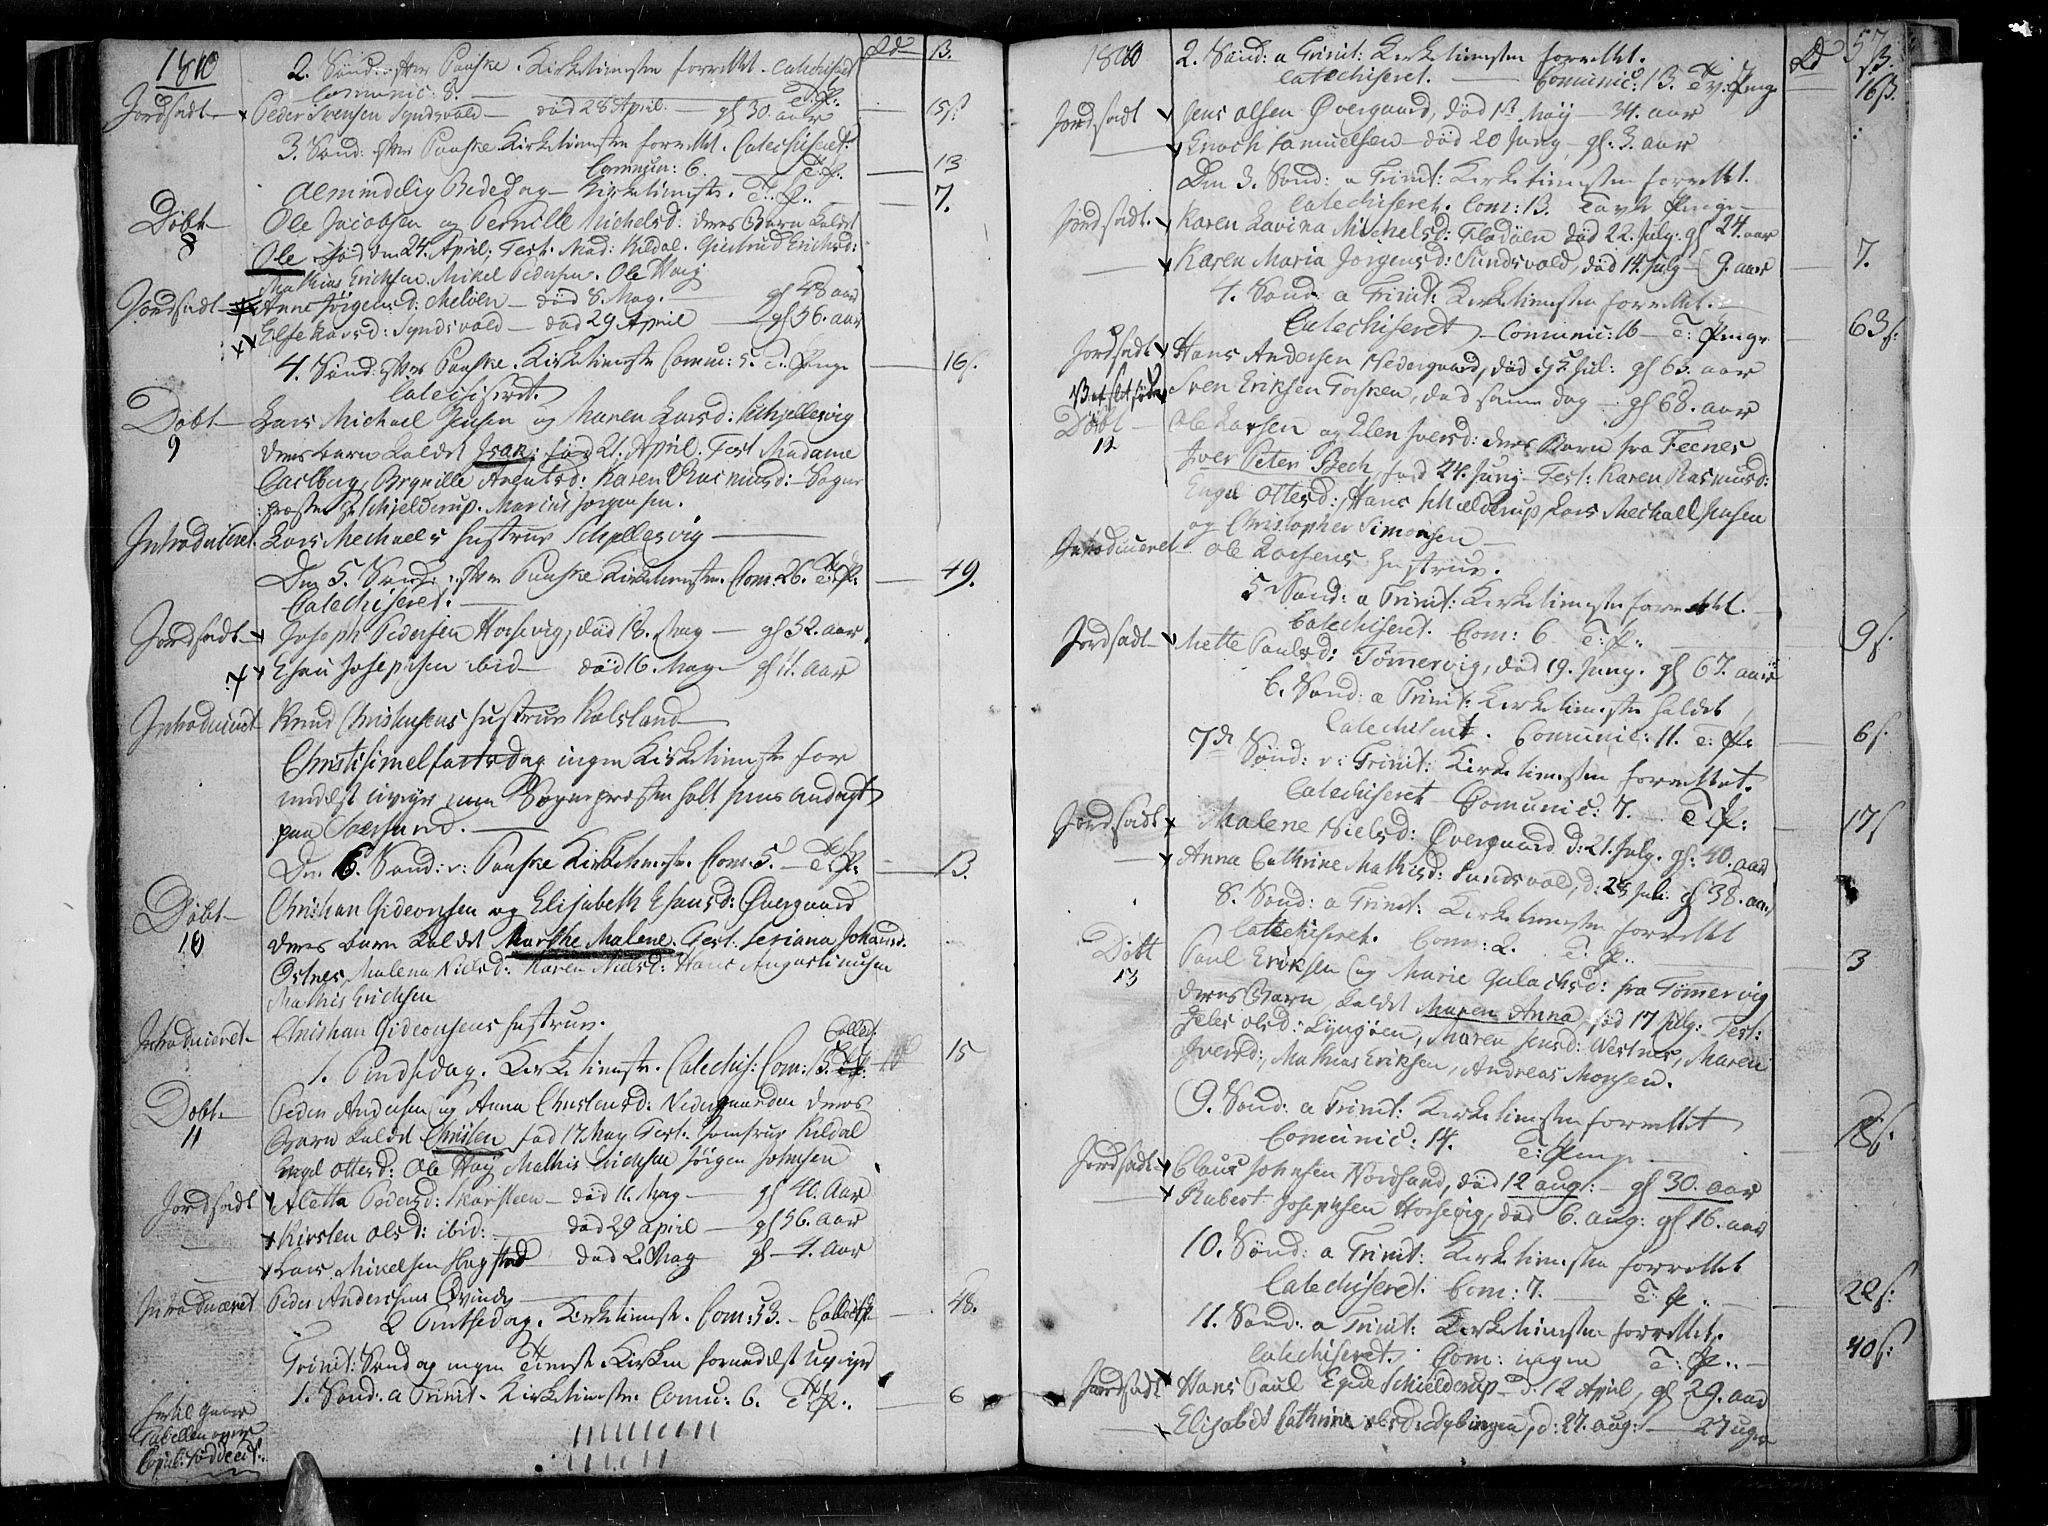 1810
2. Sønd: efter Paaske. Kirketienesten forrettet. Catechiseret
Rd ß.
Communic: 8. T: P:
Jordfadt Peder Svensen Syndsvold — død 28 April — gl 30. aar 15 s.
3. Sønd: efter Paaske. Kirketienesten forrettet. Catechiseret.
Commun: 6. T: P. 13
Almindelig Bededag — Kirketieneste. T. P. 7.
Døbt Ole Jacobsen og Pernille Michelsd: deres Barn kaldet
8 Ole fød den 24. April; Test. Mad: Kildal. Giertrud Erichsd:
Mathias Erichsen. Mikel Pedersen. Ole Høig
Jordfadt Anne Jørgensd: Meløen — død 8. May. gl 48 aar
Else Larsd: Syndsvold — død 29 April — gl 56. aar
4. Sønd: efter Paaske. Kirketieneste Comu: 5. T: Penge 16 s.
Catechiseret.
Døbt Lars Michael Jensen og Maren Larsd: Schjellesvig
9 deres barn kaldet Isak: fød 21. April. Test Madame
Carlberg, Brynille Arentsd: Karen Rasmusd: Sogne
præsten Hr Schjelderup. Marcus Jørgensen.
Introduceret Lars Mechaels Hustrue Schjellesvig
Den 5. Sønd: efter Paaske Kirketieneste. Com: 26. T: P: 49.
Catechiseret.
Jordfadt Joseph Pedersen Horsevig, død 18. May — gl 52. aar
Esau Josephsen ibid — død 16. May gl 11. aar
Introduceret Knud Christensens Hustrue Kalsland
Christi himelfartsdag ingen Kirketieneste for
medelst uveyr, men Sogne præsten holt sin andagt
paa
Den 6. Sønd: e: Paaske Kirketieneste. Com: 5. T: P: 13.
Døbt Christian Gideonsen og Elisabeth Esausd: Øvergaard
10 deres barn kaldet Marthe Malene. Test: Seriana Johansd:
Østnes, Malena Nielsd: Karen Nielsd: Hans Augustinusen
Mathis Erichsen
Introduceret Christian Gideonsens Hustrue.
Collect:
1. Pindsedag. Kirketieneste. Catechis: Com: 13. 15
Døbt Peder Andersen og Anna Christensd: Nedergaarden deres
11 Barn kaldet Christen fød 17 May Test. Jomfrue Kildal
Engel Ottesd: Ole Høig Mathis Erichsen Jørgen Johnsen
Jordfadt Aletta Pedersd: Skarsteen — død 11. May — gl 40. Aar
Kirsten Olsd: ibid: — død 29 april — gl 56. aar
Lars Mikelsen Hagstad død 2. May gl — 4. aar
Introduceret Peder Andersens Qvinde
2 Pintsedag. Kirketieneste. Com: 53. — Collect 48.
Trinit: Søndag ingen Tieneste i Kirken formedelst uveyr
1. Sønd: a Trinit. Kirketieneste Comu: 6. T: P. 6
Tabellen over
Copul: fødde etc.
1810 57
2. Sønd: a Trinit: Kirketienesten forrettet.
Rd ß.
Catechiseret. — Comunic: 13. Tv: Penge 16ß.
Jordfadt Jens Olsen Øvergaard, død 13 May — 34. aar
Enoch Samuelsen — død 20 Juny gl: 3. aar
Den 3. Sønd: a Trinit: Kirketienesten forrettet.
Catechiseret. Com: 13. Tavle Penge
Jordfadt. Karen Lavina Michelsd: Flodøen død 22. July. gl 24. aar
Karen Maria Jørgensd: Sundsvold, død 14. July — 9. aar 7.
4. Sønd: a Trinit: Kirketienesten forrettet.
Catechiseret — Comunic: 16 — T: Penge 63 s.
Jordfadt Hans Andersen Nedergaard, død d: 5 Jul: gl 63. aar
Sven Eriksen Torsken, død samme dag — gl 68. aar
Døbt Ole Larsen og Elen Iversd: deres Barn fra Feenes
12 Iver Peter Bech, fød 24. Juny — Test: Karen Rasmusd:
Engel Ottesd: Hans Schielderup, Lars Mechael Jensen
og Christopher Simonsen
Introduceret Ole Larsens Hustrue.
5 Sønd: a Trinit: Kirketienesten forrettet.
Catechiseret. Com: 6 T: P. 9 s.
Jordfadt Mette Paulsd: Tømervig, død 19. Juny. gl 67. aar
6. Sønd: a Trinit: Kirketieneste holdet
Catechiseret. Comunic: 11. T: P: 6 s.
7de Sønd: e: Trinit: Kirketienesten forrettet.
Catechiseret — Comunic: 7. T: P: 17 s
Jordfadt Malene Nielsd: Øvergaard d: 21. July. gl: 40. aar
Anna Cathrine Mathisd: Sundsvold, d: 28 Juli. gl 38. aar
8. Sønd: a Trinit: Kirketienesten forrettet
Catechiseret. Com: 2. T. P. 3
Døbt Paul Eriksen og Marie Gulachsd: fra Tømervig
13 deres Barn, kaldet Maren Anna, fød 17 July: Test:
Peles Olsd: Lyngøen, Maren Jensd: Westnes, Maren
Iversd:, Mathias Eriksen, Andreas Monsen.
9. Sønd: a Trinit: Kirketienesten forrettet
Comunic: 14. T: Penge 18 s.
Jordfadt Claus Johnsen Nordsand, død 12 aug: — gl 30. aar
Rubert Josephsen Horsevig, død 6. aug: gl 16. aar
10. Sønd: a Trinit: Kirketienesten forrettet
Catechiseret. Com: 7. T. P. 22 s:
11. Sønd: a Trinit: Kirketienesten forrettet.
Catechiseret. Com: ingen T: P. 40 s:
Jordfadt Hans Paul Egde Schielderup — d. 12 April, gl 29. aar
Elisabet Cathrine Olsd: Dybingen, d: 27. aug: — 27 uger